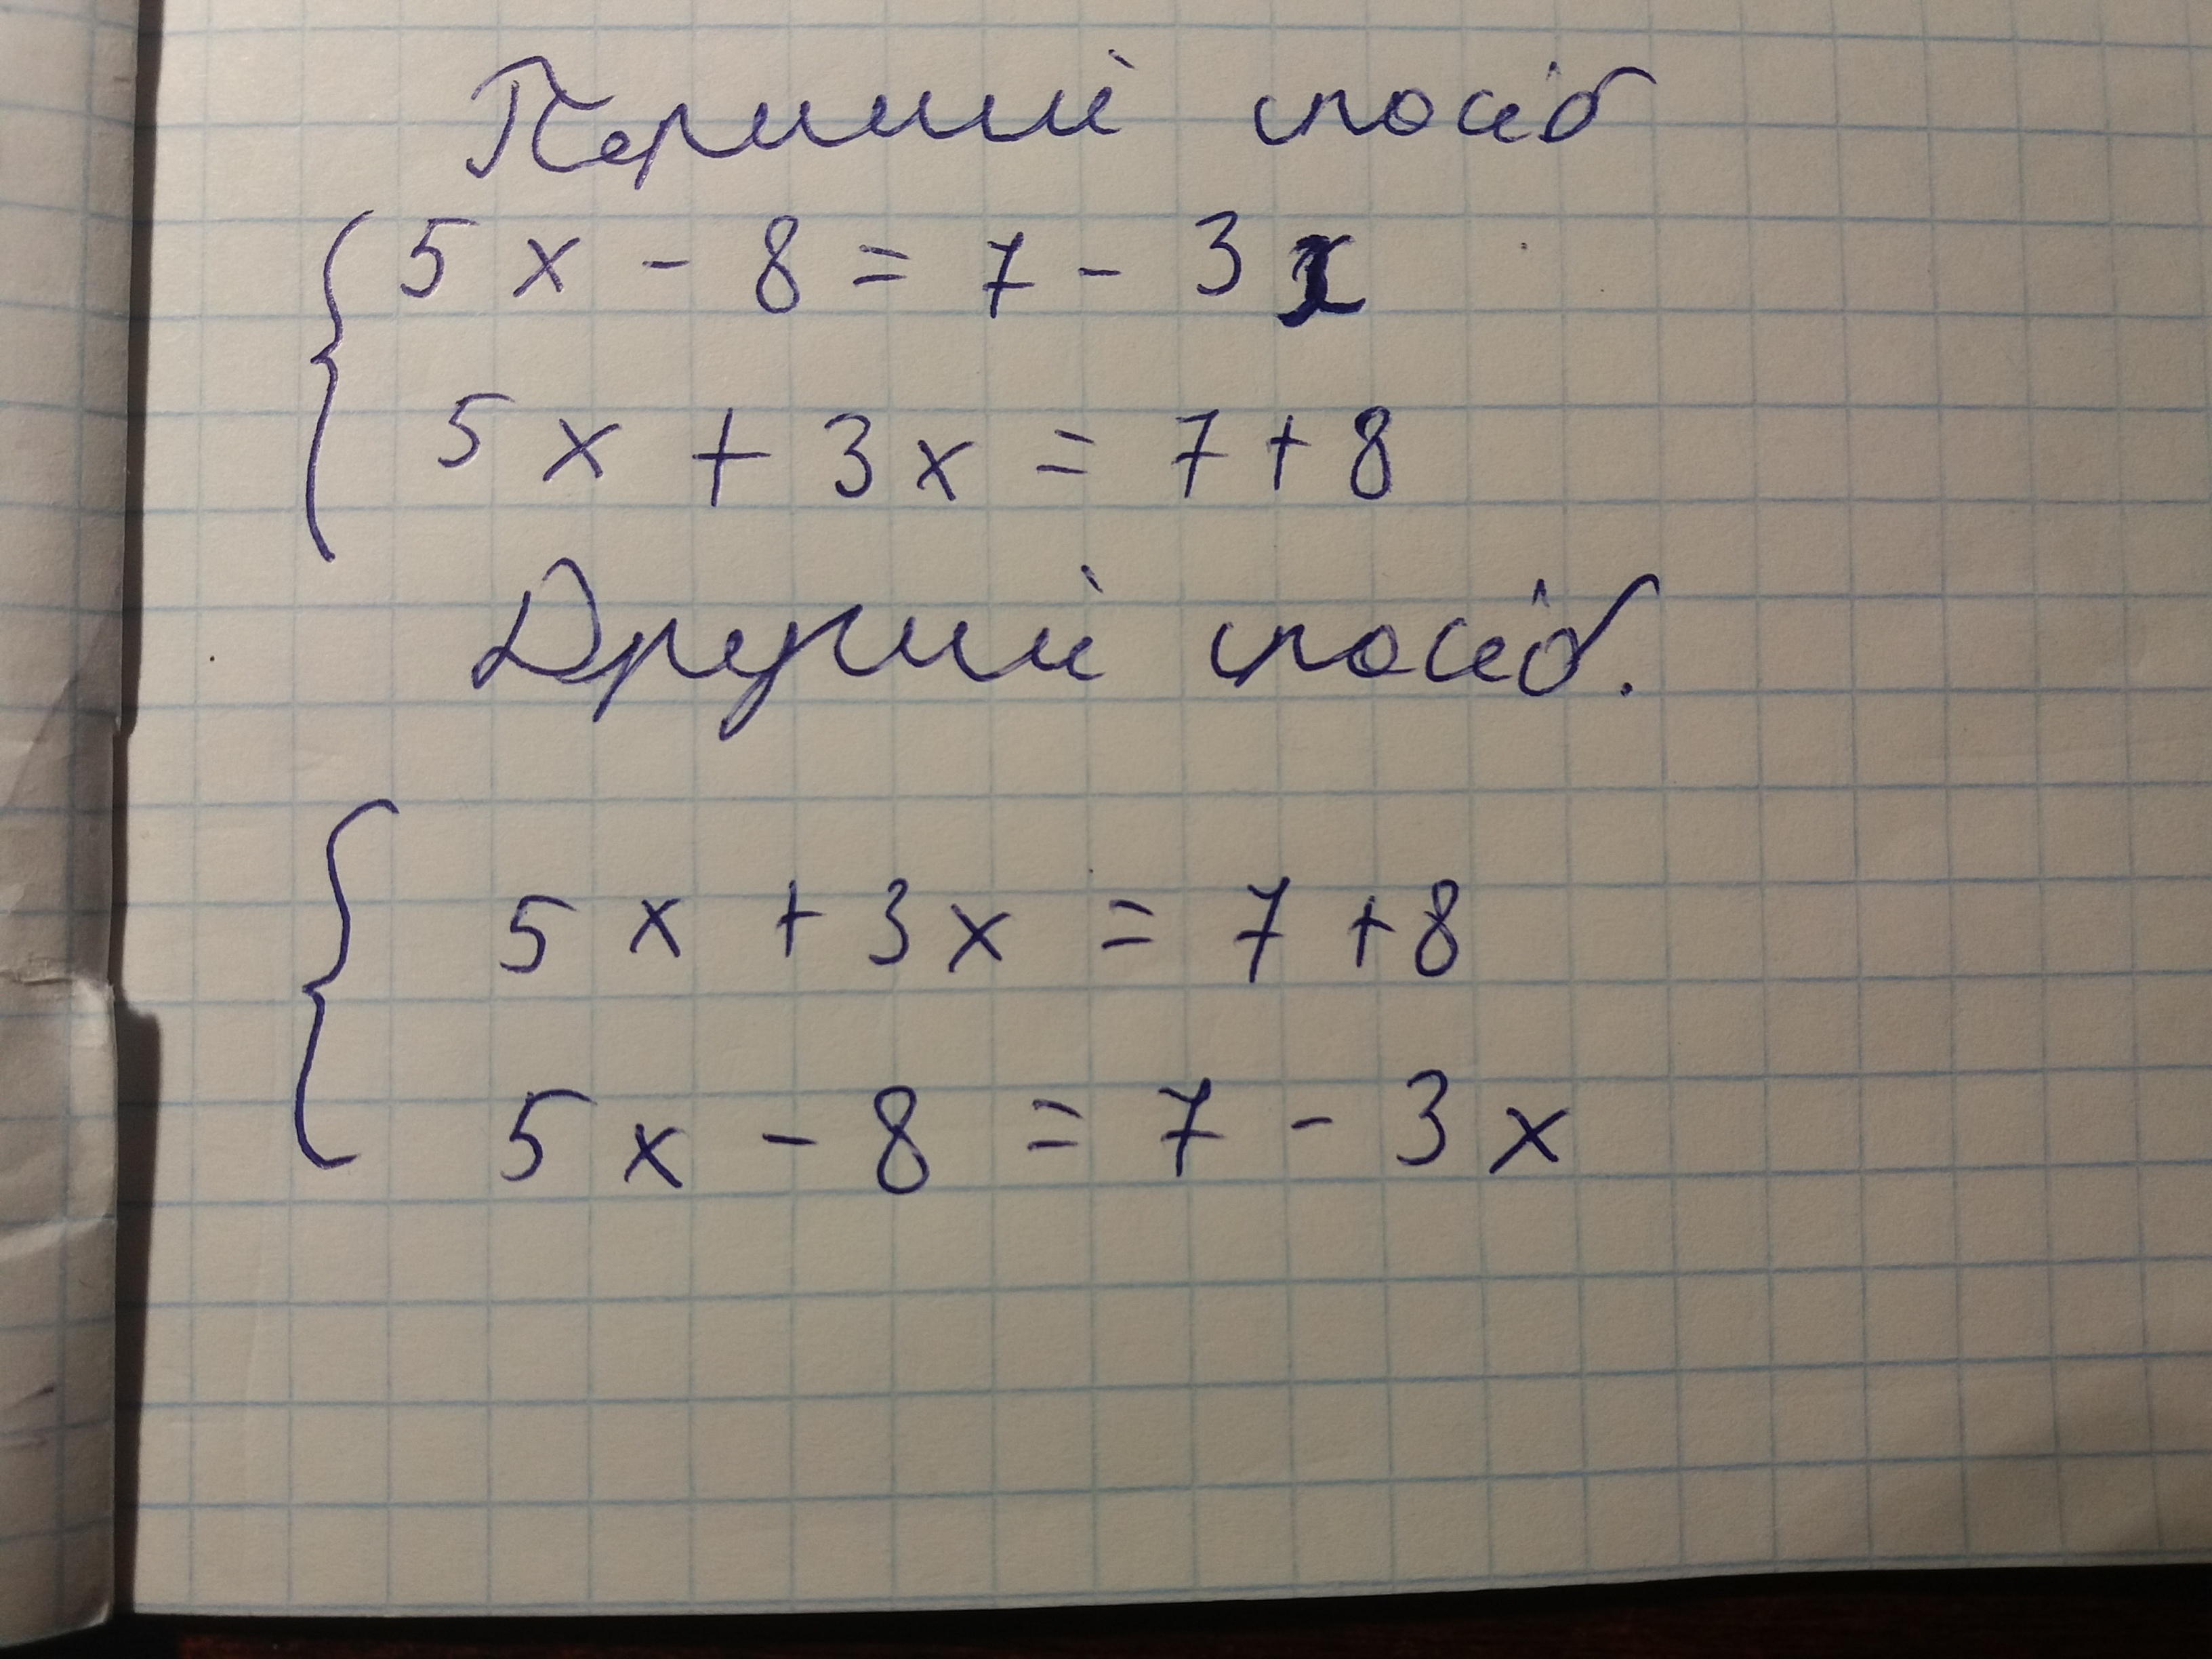 Перший спосіб
5x - 8 = 7 - 3x
5x + 3x = 7 + 8
Другий спосіб.
5x + 3x = 7 + 8
5x - 8 = 7 - 3x